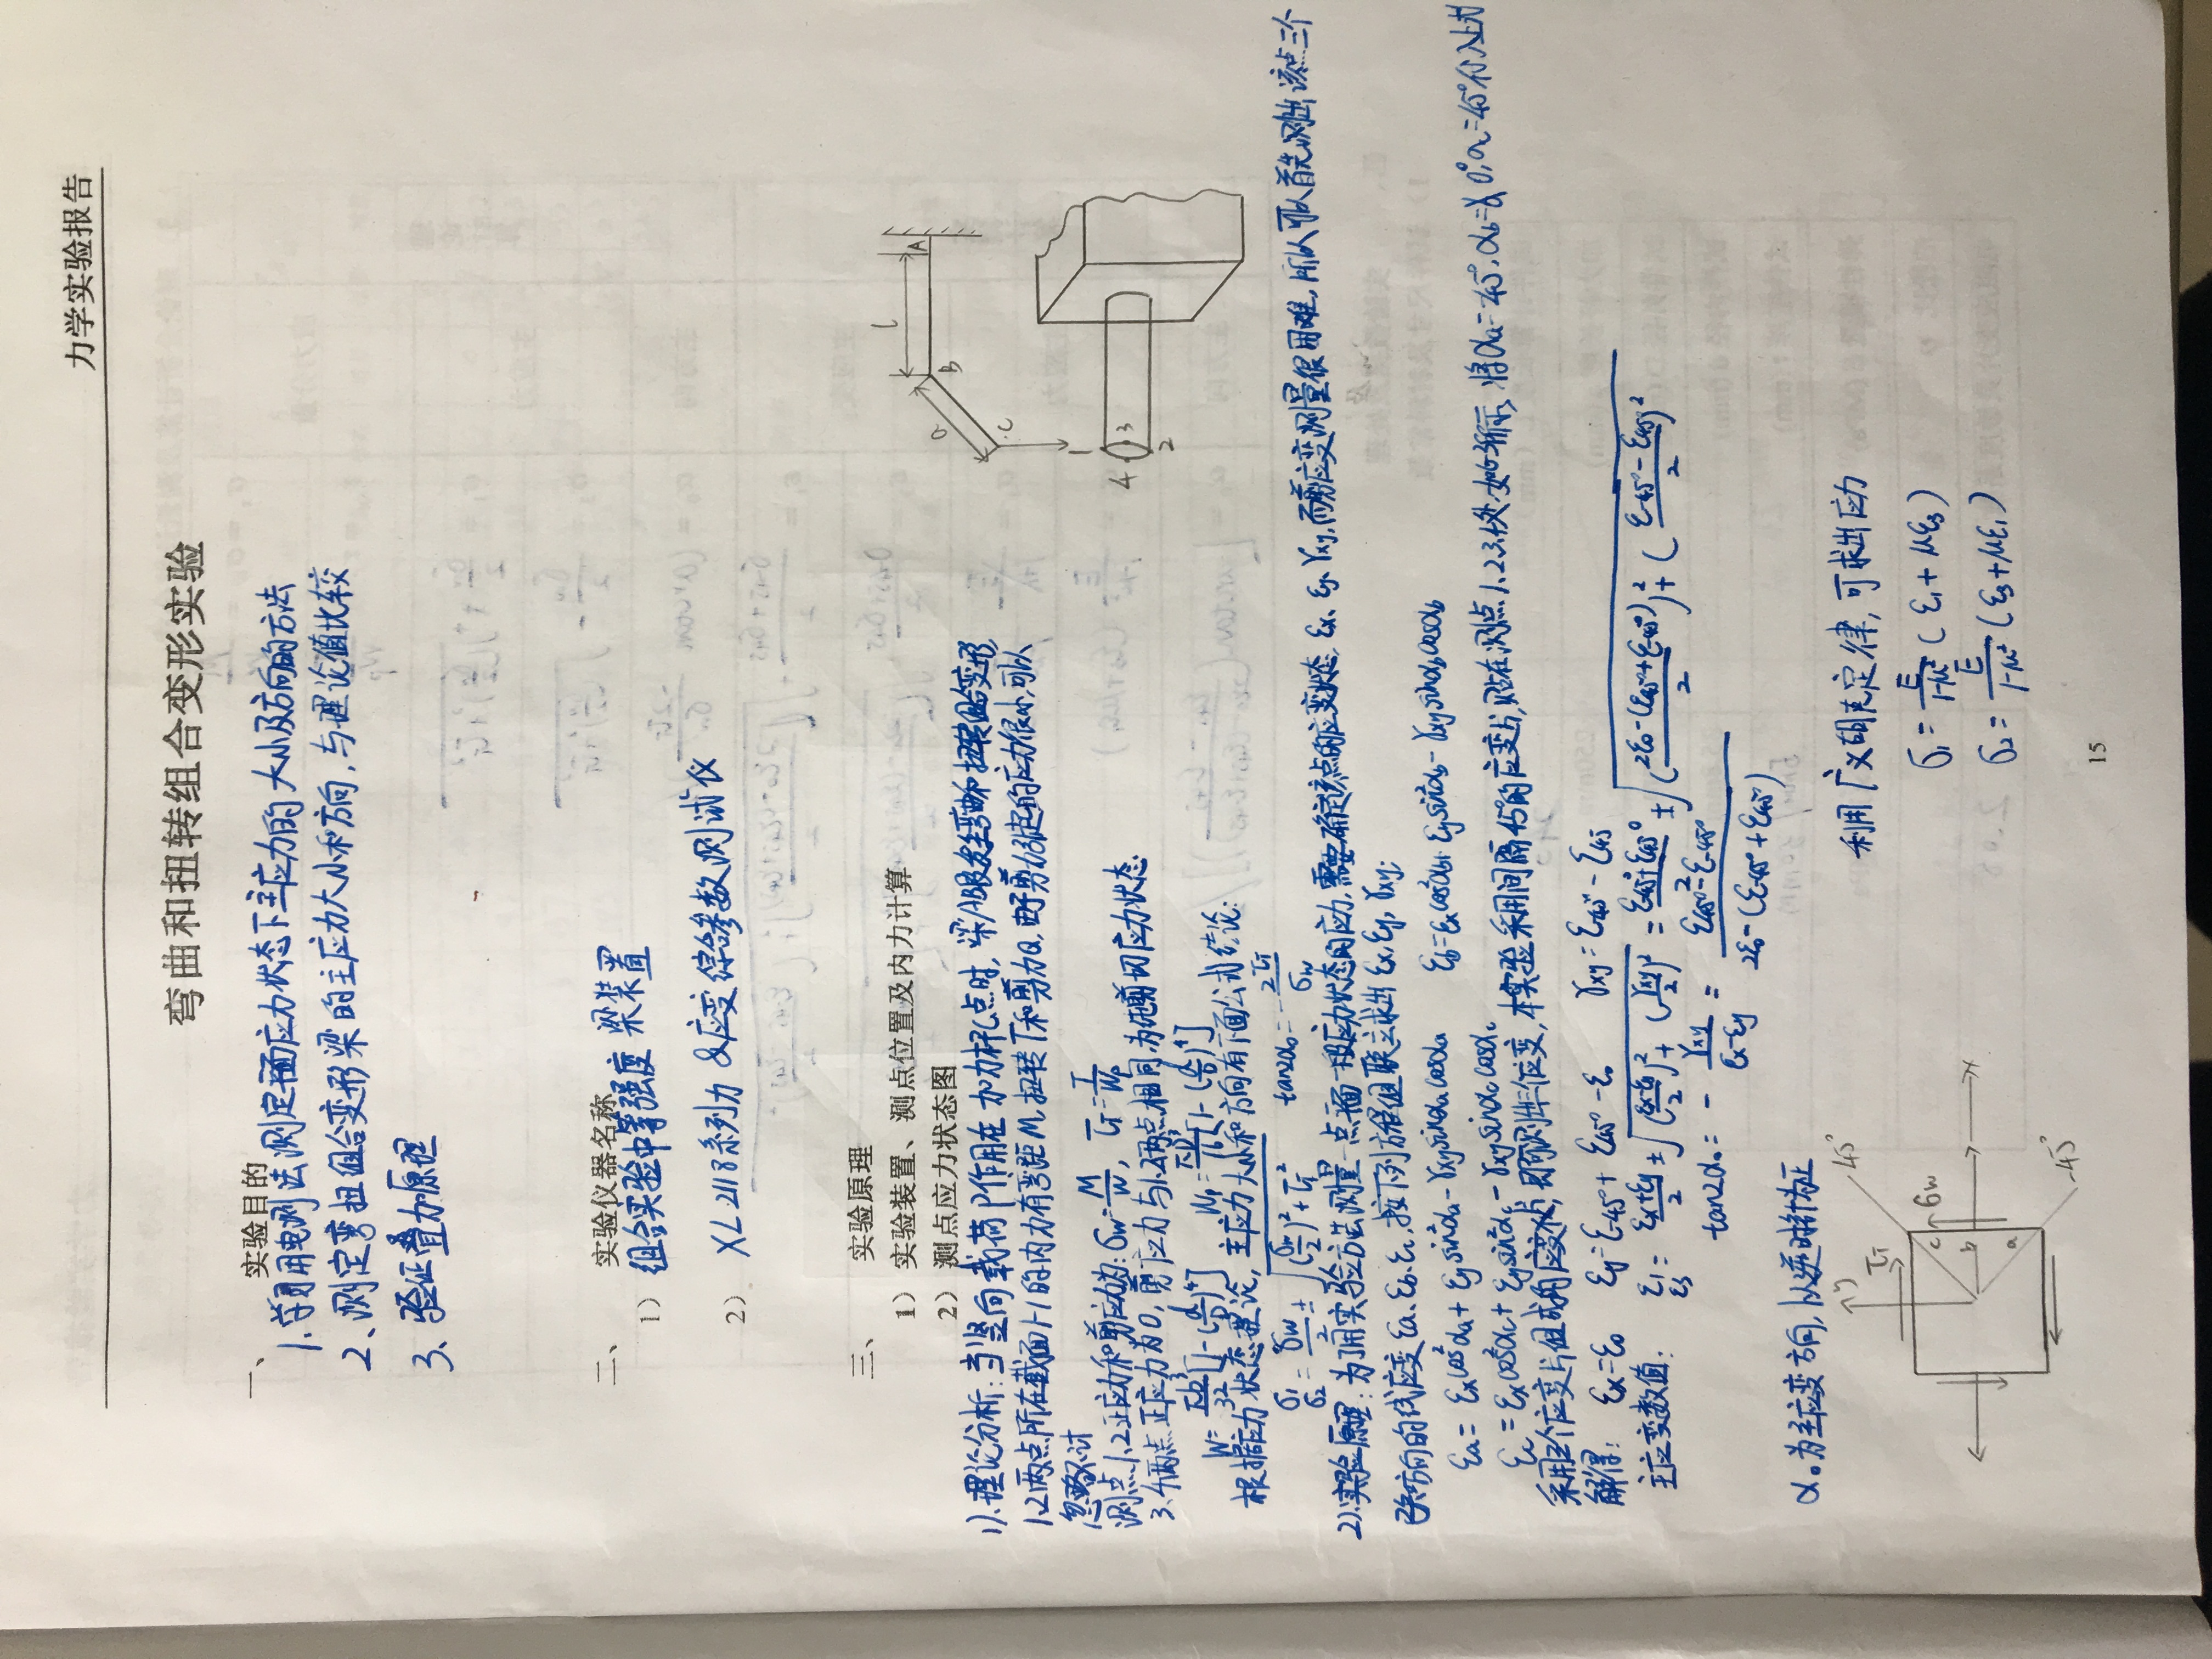 力学实验报告
弯曲和扭转组合变形实验
一、 实验目的
1.学习用电测法测定平面应力状态下主应力的大小及方向的方法
2、测定弯扭组合变形梁的主应力大小和方向,与理论值比较
3、验证叠加原理
二、 实验仪器名称
1) 组合实验中等强度梁装置
2) XL2118系列力&应变综合参数测试仪
三、 实验原理
1) 实验装置、测点位置及内力计算
2) 测点应力状态图
l
A
a
B
C
1).理论分析:当竖向载荷P作用在加力杆C点时,梁AB段发生弯曲和扭转组合变形,
1.2两点所在截面1-1的内力有弯距M,扭转T和剪力Q,由于剪力引起的应力很小,可以
忽略不计
测点1、2正应力和剪应力为: σw=M/W, τT=T/Wp
3、4两点正应力为0,剪应力与1.2两点相同,为纯剪切应力状态.
1
4 3
2
W=πD³/32[1-(d/D)⁴] Wp=πD³/16[1-(d/D)⁴]
根据应力状态理论,主应力大小和方向有下面公式结论:
σ1 σ2 = σw/2 ± √((σw/2)²+τT²) tan2α0=-2τT/σw
2).实验原理:为了用实验方法测量一点平面一般应力状态的应力,需要确定该点的应变状态,εx、εy、γxy,而剪应变测量很困难,所以可以首先测出该点三个
已知方向的线应变εa、εb、εc,按下列方程组联立求出εx,εy,γxy:
εa=εxcos²αa+εysin²αa-γxysinαacosαa εb=εxcos²αb+εysin²αb-γxysinαbcosαb
εc=εxcos²αc+εysin²αc-γxysinαccosαc
采用三个应变片组成的应变花,即可测出三个应变,本实验采用间隔45°的应变片,贴在测点1.2.3.4处,如图所示,将αa=-45°,αb=0°,αc=45°代入上式
解得: εx=ε0 εy=ε-45°+ε45°-ε0 γxy=ε-45°-ε45
主应变数值: ε1 ε3 = (εx+εy)/2 ± √(((εx-εy)/2)²+(γxy/2)²) = (ε-45°+ε45°)/2 ± √(((2ε0-(ε45°+ε-45°))/2)²+((ε-45°-ε45°)/2)²)
tan2α0=-γxy/(εx-εy)=(ε45°-ε-45°)/(2ε0-(ε-45°+ε45°))
α0为主应变方向,以逆时针为正
y
45°
τT
c
σw
b
x
a
-45°
利用广义胡克定律,可求出应力
σ1=E/(1-μ²)(ε1+με3)
σ2=E/(1-μ²)(ε3+με1)
15